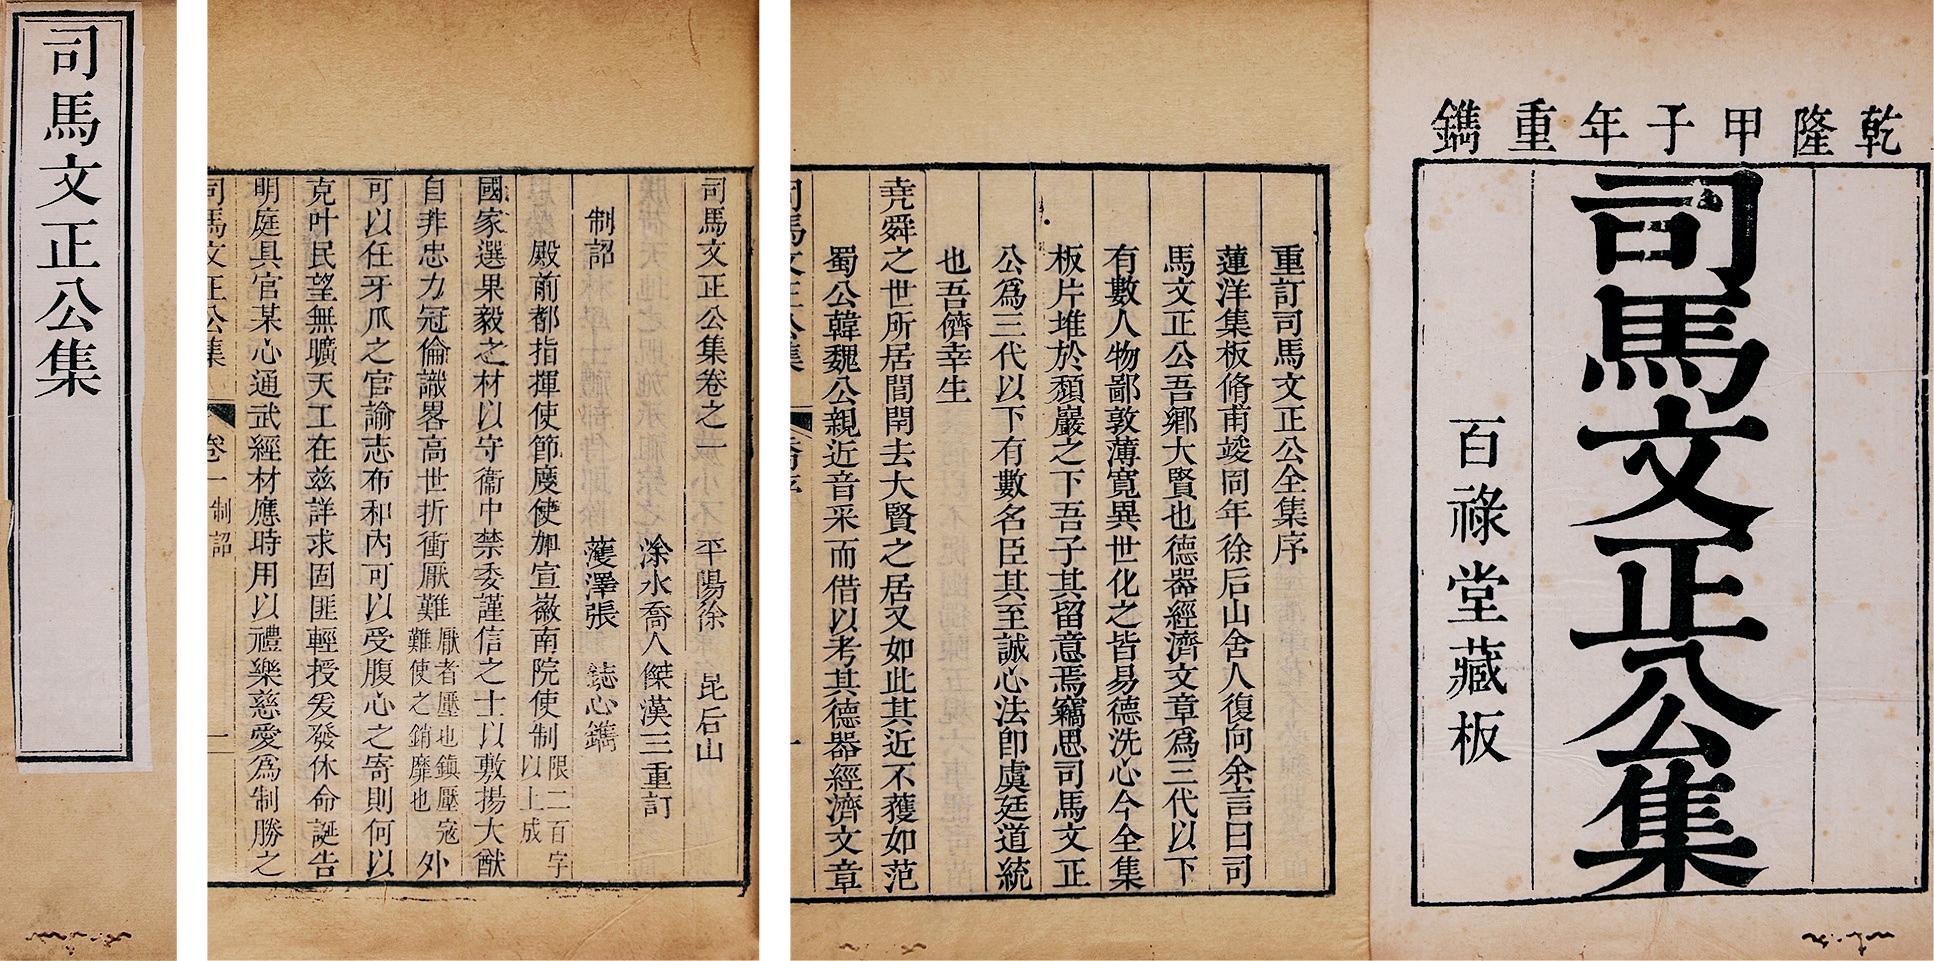 乾隆甲子年重鐫
司馬文正公集
百祿堂藏板
重訂司馬文正公全集序
蓮洋集板脩甫竣同年徐后山舍人復向余言曰司
馬文正公吾鄉大賢也德器經濟文章爲三代以下
有數人物鄙敦薄寬異世化之皆易德洗心今全集
板片堆於頹巖之下吾子其留意焉竊思司馬文正
公爲三代以下有數名臣其至誠心法卽虞廷道統
也吾儕幸生
堯舜之世所居閭閈去大賢之居又如此其近不獲如范
蜀公韓魏公親近音采而借以考其德器經濟文章
司馬文正公集
司馬文正公集卷之一 平陽徐 昆后山
涂水喬人傑漢三重訂
制詔 濩澤張 誌心鐫
殿前都指揮使節度使加宣徽南院使制限二百字以上成
國家選果毅之材以守衞中禁委謹信之士以敷揚大猷
自非忠力冠倫識畧高世折衝厭難厭者壓也鎮壓寇難使之銷靡也外
可以任牙爪之官諭志布和內可以受腹心之寄則何以
克叶民望無曠天工在茲詳求固匪輕授爰發休命誕告
明庭具官某心通武經材應時用以禮樂慈愛爲制勝之
司馬文正公集 卷一 制詔 一
司馬文正公集